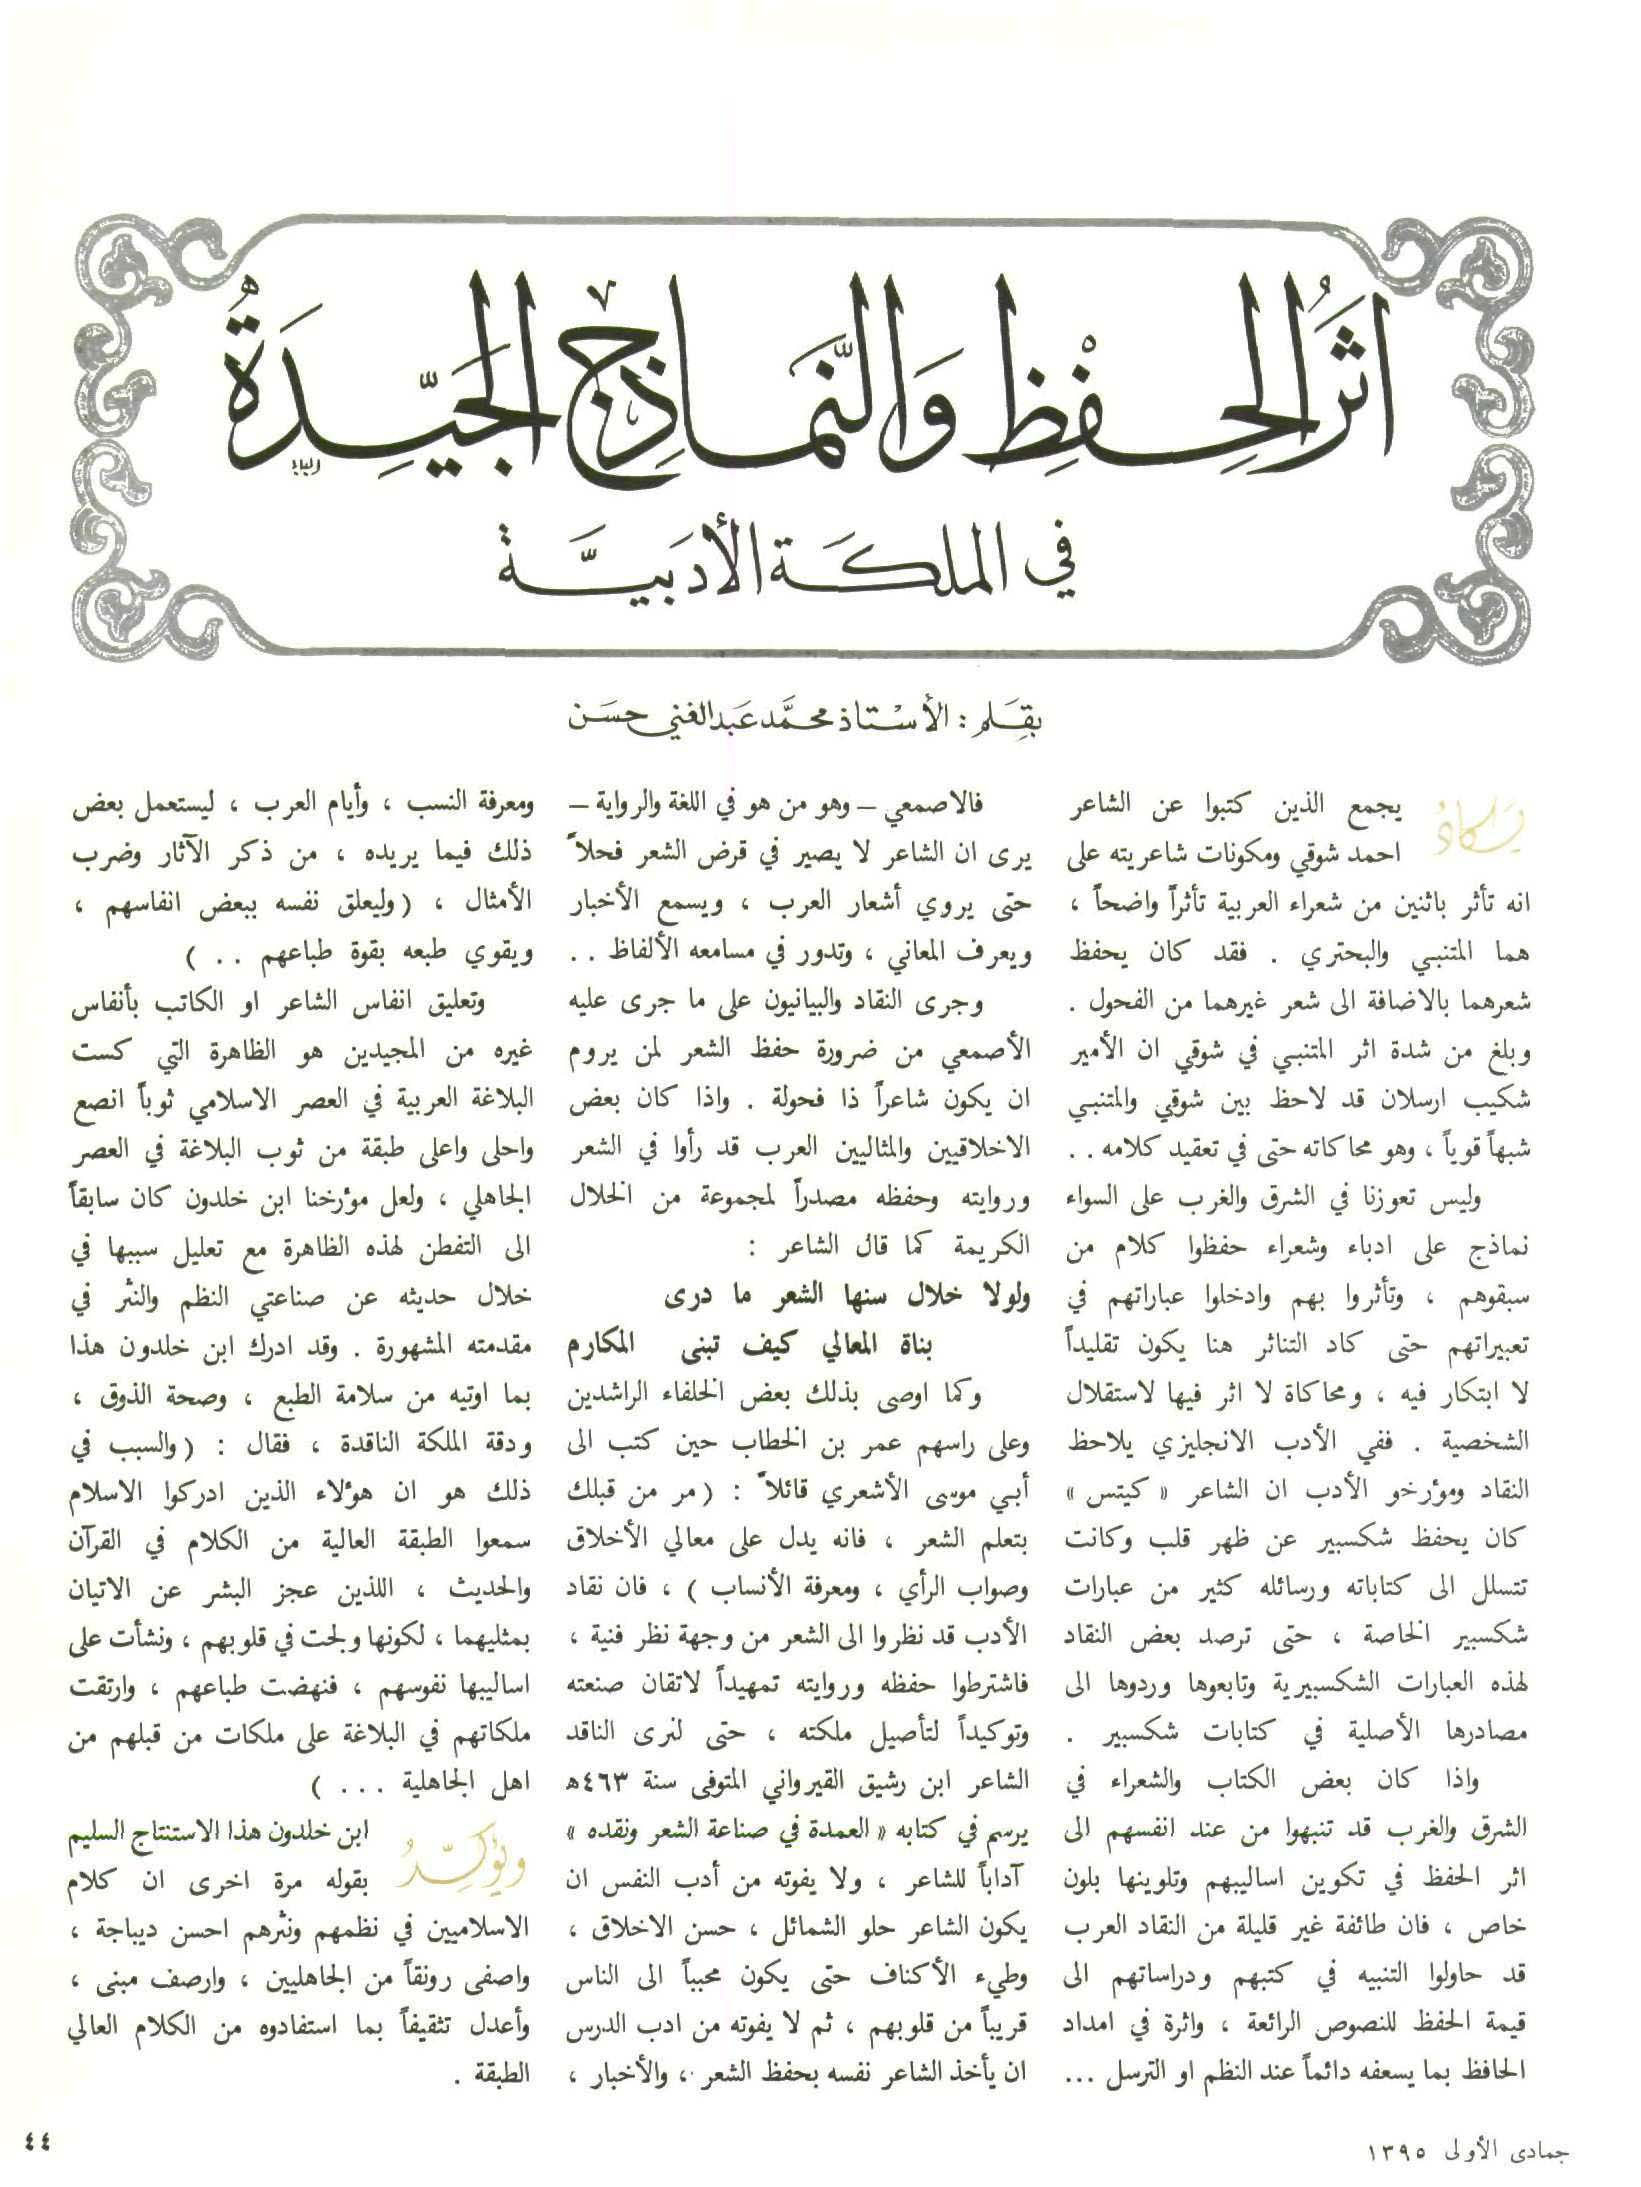 أثر الحفظ والنماذج الجيدة
في الملكة الأدبية
بقلم : الأستاذ محمد عبد الغني حسن
يكاد يجمع الذين كتبوا عن الشاعر
احمد شوقي ومكونات شاعريته على
انه تأثر باثنين من شعراء العربية تأثراً واضحاً ،
هما المتنبي والبحتري . فقد كان يحفظ
شعرهما بالاضافة الى شعر غيرهما من الفحول .
وبلغ من شدة اثر المتنبي في شوقي ان الأمير
شكيب ارسلان قد لاحظ بين شوقي والمتنبي
شبهاً قوياً ، وهو محاكاته حتى في تعقيد كلامه . .
وليس تعوزنا في الشرق والغرب على السواء
نماذج على ادباء وشعراء حفظوا كلام من
سبقوهم ، وتأثروا بهم وادخلوا عباراتهم في
تعبيراتهم حتى كاد التناثر هنا يكون تقليداً
لا ابتكار فيه ، ومحاكاة لا اثر فيها لاستقلال
الشخصية . ففي الأدب الانجليزي يلاحظ
النقاد ومؤرخو الأدب ان الشاعر « كيتس »
كان يحفظ شكسبير عن ظهر قلب وكانت
تتسلل الى كتاباته ورسائله كثير من عبارات
شكسبير الخاصة ، حتى ترصد بعض النقاد
لهذه العبارات الشكسبيرية وتابعوها وردوها الى
مصادرها الأصلية في كتابات شكسبير .
واذا كان بعض الكتاب والشعراء في
الشرق والغرب قد تنبهوا من عند انفسهم الى
اثر الحفظ في تكوين اساليبهم وتلوينها بلون
خاص ، فان طائفة غير قليلة من النقاد العرب
قد حاولوا التنبيه في كتبهم ودراساتهم الى
قيمة الحفظ للنصوص الرائعة ، واثرة في امداد
الحافظ بما يسعفه دائماً عند النظم او الترسل ...
فالاصمعي – وهو من هو في اللغة والرواية –
يرى ان الشاعر لا يصير في قرض الشعر فحلاً
حتى يروي أشعار العرب ، ويسمع الأخبار
ويعرف المعاني ، وتدور في مسامعه الألفاظ . .
وجرى النقاد والبيانيون على ما جرى عليه
الأصمعي من ضرورة حفظ الشعر لمن يروم
ان يكون شاعراً ذا فحولة . واذا كان بعض
الاخلاقيين والمثاليين العرب قد رأوا في الشعر
وروايته وحفظه مصدراً لمجموعة من الخلال
الكريمة كما قال الشاعر :
ولولا خلال سنها الشعر ما درى
بناة المعالي كيف تبنى المكارم
وكما اوصى بذلك بعض الخلفاء الراشدين
وعلى راسهم عمر بن الخطاب حين كتب الى
أبي موسى الأشعري قائلاً : ( مر من قبلك
بتعلم الشعر ، فانه يدل على معالي الأخلاق
وصواب الرأي ، ومعرفة الأنساب ) ، فان نقاد
الأدب قد نظروا الى الشعر من وجهة نظر فنية ،
فاشترطوا حفظه وروايته تمهيداً لاتقان صنعته
وتوكيداً لتأصيل ملكته ، حتى لنرى الناقد
الشاعر ابن رشيق القيرواني المتوفى سنة ٤٦٣ه
يرسم في كتابه « العمدة في صناعة الشعر ونقده »
آداباً للشاعر ، ولا يفوته من أدب النفس ان
يكون الشاعر حلو الشمائل ، حسن الاخلاق ،
وطيء الأكناف حتى يكون محبباً الى الناس
قريباً من قلوبهم ، ثم لا يفوته من ادب الدرس
ان يأخذ الشاعر نفسه بحفظ الشعر ، والأخبار ،
ومعرفة النسب ، وأيام العرب ، ليستعمل بعض
ذلك فيما يريده ، من ذكر الآثار وضرب
الأمثال ، ( وليعلق نفسه ببعض انفاسهم ،
ويقوي طبعه بقوة طباعهم . . )
وتعليق انفاس الشاعر او الكاتب بأنفاس
غيره من المجيدين هو الظاهرة التي كست
البلاغة العربية في العصر الاسلامي ثوباً انصع
واحلى واعلى طبقة من ثوب البلاغة في العصر
الجاهلي ، ولعل مؤرخنا ابن خلدون كان سابقاً
الى التفطن لهذه الظاهرة مع تعليل سببها في
خلال حديثه عن صناعتي النظم والنثر في
مقدمته المشهورة . وقد ادرك ابن خلدون هذا
بما اوتيه من سلامة الطبع ، وصحة الذوق ،
ودقة الملكة الناقدة ، فقال : ( والسبب في
ذلك هو ان هؤلاء الذين ادركوا الاسلام
سمعوا الطبقة العالية من الكلام في القرآن
والحديث ، اللذين عجز البشر عن الاتيان
بمثليهما ، لكونها ولجت في قلوبهم ، ونشأت على
اساليبها نفوسهم ، فنهضت طباعهم ، وارتقت
ملكاتهم في البلاغة على ملكات من قبلهم من
اهل الجاهلية ... )
ويؤكد ابن خلدون هذا الاستنتاج السليم
بقوله مرة اخرى ان كلام
الاسلاميين في نظمهم ونثرهم احسن ديباجة ،
واصفى رونقاً من الجاهليين ، وارصف مبنى ،
وأعدل تثقيفاً بما استفادوه من الكلام العالي
الطبقة .
جمادى الأولى ١٣٩٥
٤٤